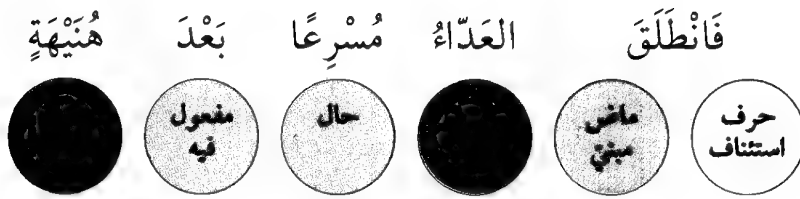 فَانْطَلَقَ العَدّاءُ مُسْرِعًا بَعْدَ هُنَيْهَةٍ
حرف استئناف
ماض مبنيّ
حال
مفعول فيه